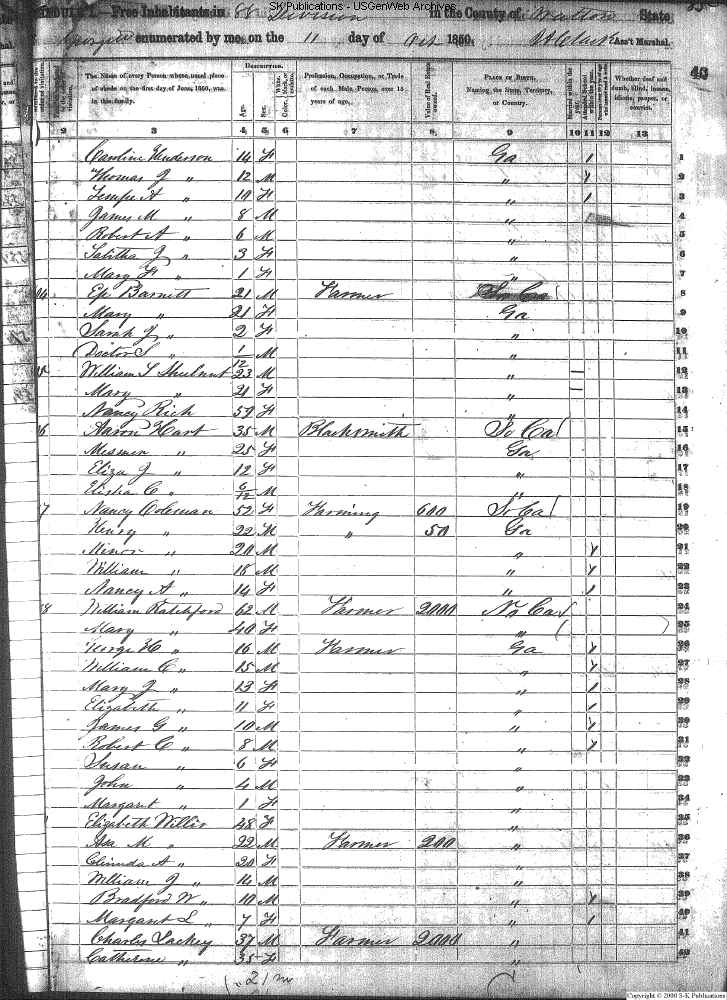 SK Publications - USGenWeb Archives
Free Inhabitants in 88 Division in the County of Walton State
Georgia enumerated by me, on the 11 day of Oct 1850. Ass't Marshal.
43
Description.
The Name of every Person whose usual place of abode on the first day of June, 1850, was in this family.
Age.
Sex.
Color, White, black, or mulatto.
Profession, Occupation, or Trade of each Male Person over 15 years of age.
Value of Real Estate owned.
Place of Birth. Naming the State, Territory, or Country.
Married within the year.
Attended School within the year.
Whether deaf and dumb, blind, insane, idiotic, pauper, or convict.
2 3 4 5 6 7 8 9 10 11 12 13
Caroline Henderson 14 F Ga 1 1
Thomas J " 12 M " 1 2
Tempe A " 10 F " 1 3
James M " 8 M " 1 4
Robert A " 6 M " 5
Tabitha J " 3 F " 6
Mary F " 1 F " 7
Ep Barnett 21 M Farmer 8
Mary " 21 F Ga 9
Sarah J " 2 F " 10
Doctor S " 1/12 M 11
William S 23 M " 12
Mary " 21 F " 13
Nancy Rich 59 F " 14
6 Aaron Hart 35 M Blacksmith So Ca 15
Mesmer " 25 F Ga 16
Eliza J " 12 F " 17
Elisha C " 6/12 M " 18
7 Nancy Coleman 52 F Farming 600 So Ca 19
Henry " 22 M " 50 Ga 20
Minor " 20 M " 1 21
William " 18 M " 1 22
Nancy A " 14 F " 1 23
8 William Ratchford 62 M Farmer 2000 No Ca 24
Mary " 40 F " 25
George H " 16 M Farmer Ga 1 26
William C " 15 M " 1 27
Mary J " 13 F " 1 28
Elizabeth " 11 F " 1 29
James G " 10 M " 1 30
Robert C " 8 M " 1 31
Susan " 6 F " 32
John " 4 M " 33
Margaret " 1 F " 34
Elizabeth Willis 48 F " 35
Asa M " 22 M Farmer 200 " 36
Clinuda A " 20 F " 37
William J " 14 M " 38
Bradford W " 10 M " 1 39
Margaret L " 7 F " 1 40
Charles Lackey 37 M Farmer 2000 " 41
Catherine " 35 F " 42
21 m
Copyright © 2000 S-K Publications